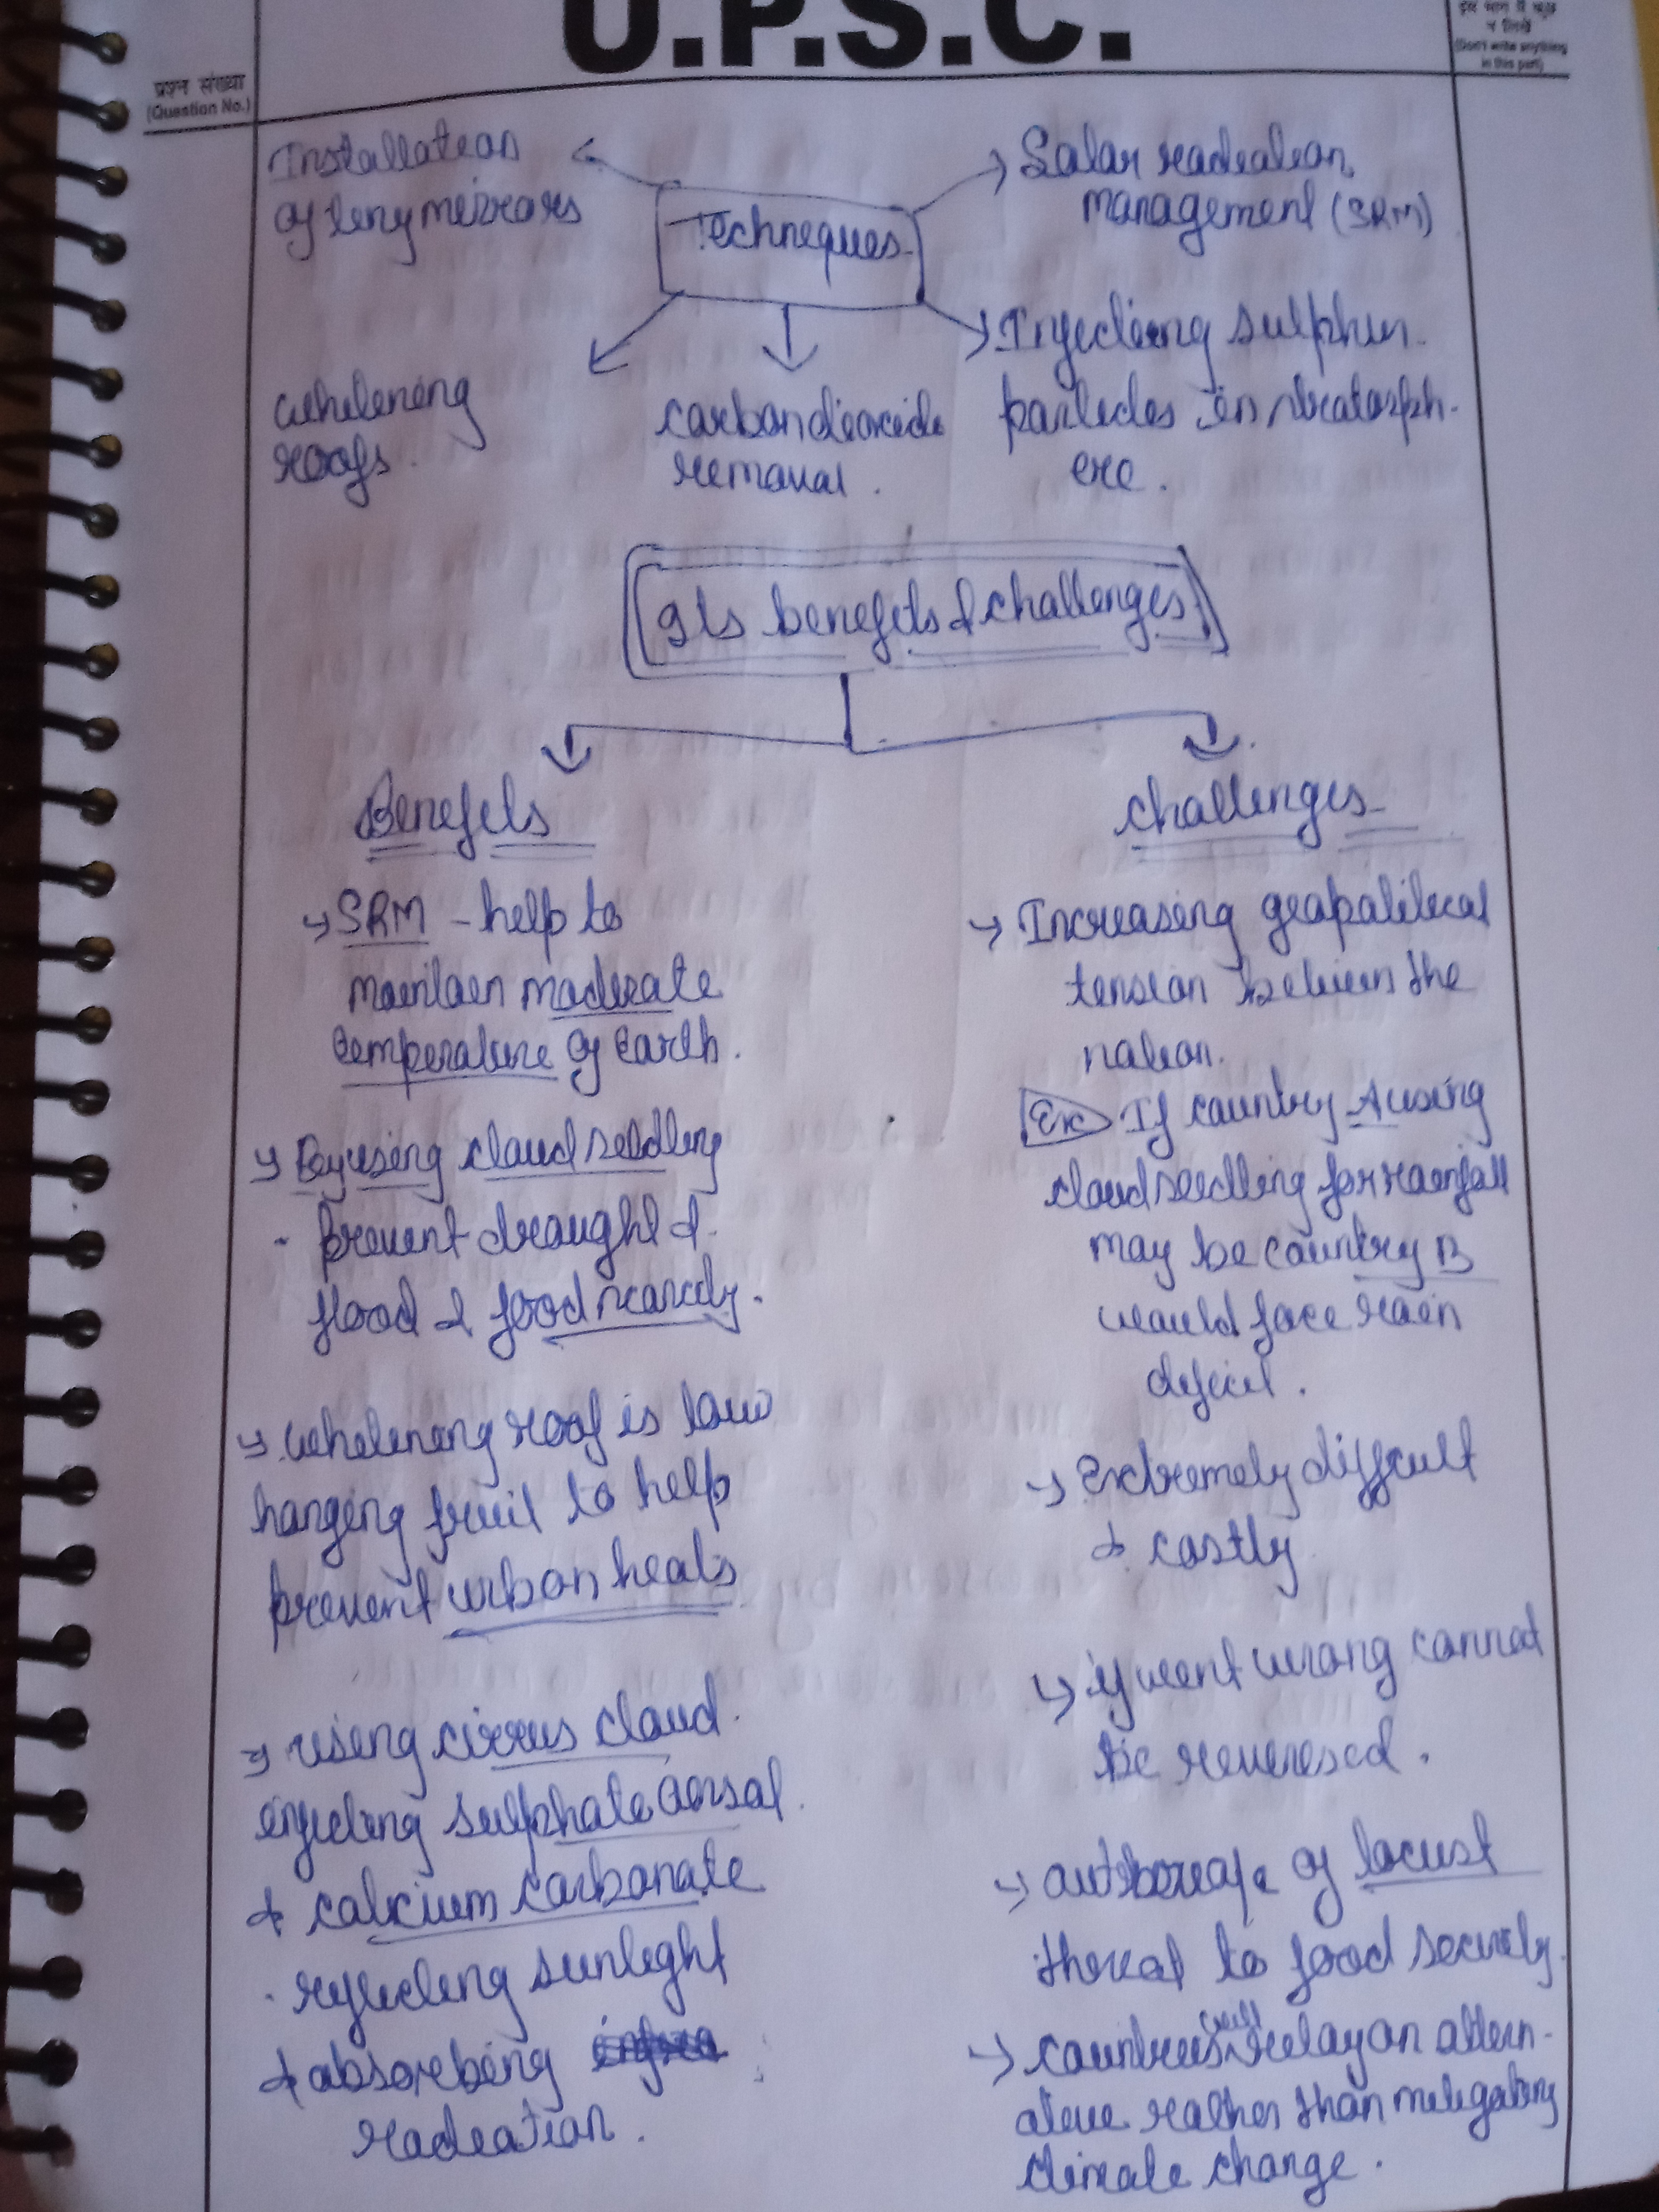 U.P.S.C.
प्रश्न संख्या
(Question No.)
इस भाग में कुछ
न लिखें
(Don't write anything
in this part)
Installation
of tiny mirrors
Techniques
Solar radiation
management (SRM)
Injecting sulphur
particles in stratosph-
ere.
whitening
roofs.
carbondioxide
removal.
Its benefits & challenges
Benefits
→ SRM - help to
maintain moderate
temperature of Earth.
→ By using cloud seedling
prevent draught &
flood & food scarcity.
→ whitening roof is low
hanging fruit to help
prevent urban heats
→ using cirrus cloud.
injecting sulphate aorsal.
& calcium carbonate
reflecting sunlight
& absorbing
radiation.
challenges
→ Increasing geopolitical
tension between the
nation.
Ex If country A using
cloud seedling for rainfall
may be country B
would face rain
deficit.
→ Extremely difficult
& costly
→ if went wrong cannot
be reveresed.
→ of locust
threat to food security.
→ countries will relay on altern-
ative rather than mitigating
climate change.